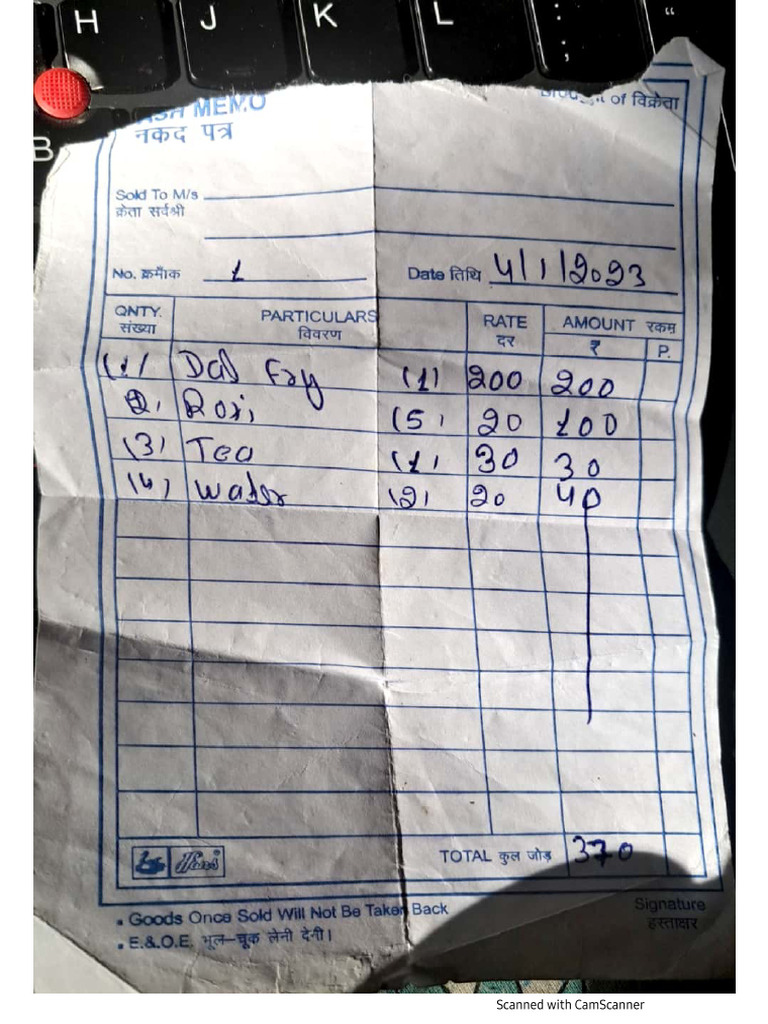 H J K L : ; "
B
CASH MEMO of विक्रेता
नकद पत्र
Sold To M/s
क्रेता सर्वश्री
No. क्रमाँक 1 Date तिथि 4/1/2023
QNTY. PARTICULARS RATE AMOUNT रकम
संख्या विवरण दर ₹ P.
(1) Dal Fry (1) 200 200
2) Roti (5) 20 100
(3) Tea (1) 30 30
(4) water (2) 20 40
TOTAL कुल जोड़ 370
• Goods Once Sold Will Not Be Taken Back Signature
• E.&O.E. भूल-चूक लेनी देनी। हस्ताक्षर
Scanned with CamScanner